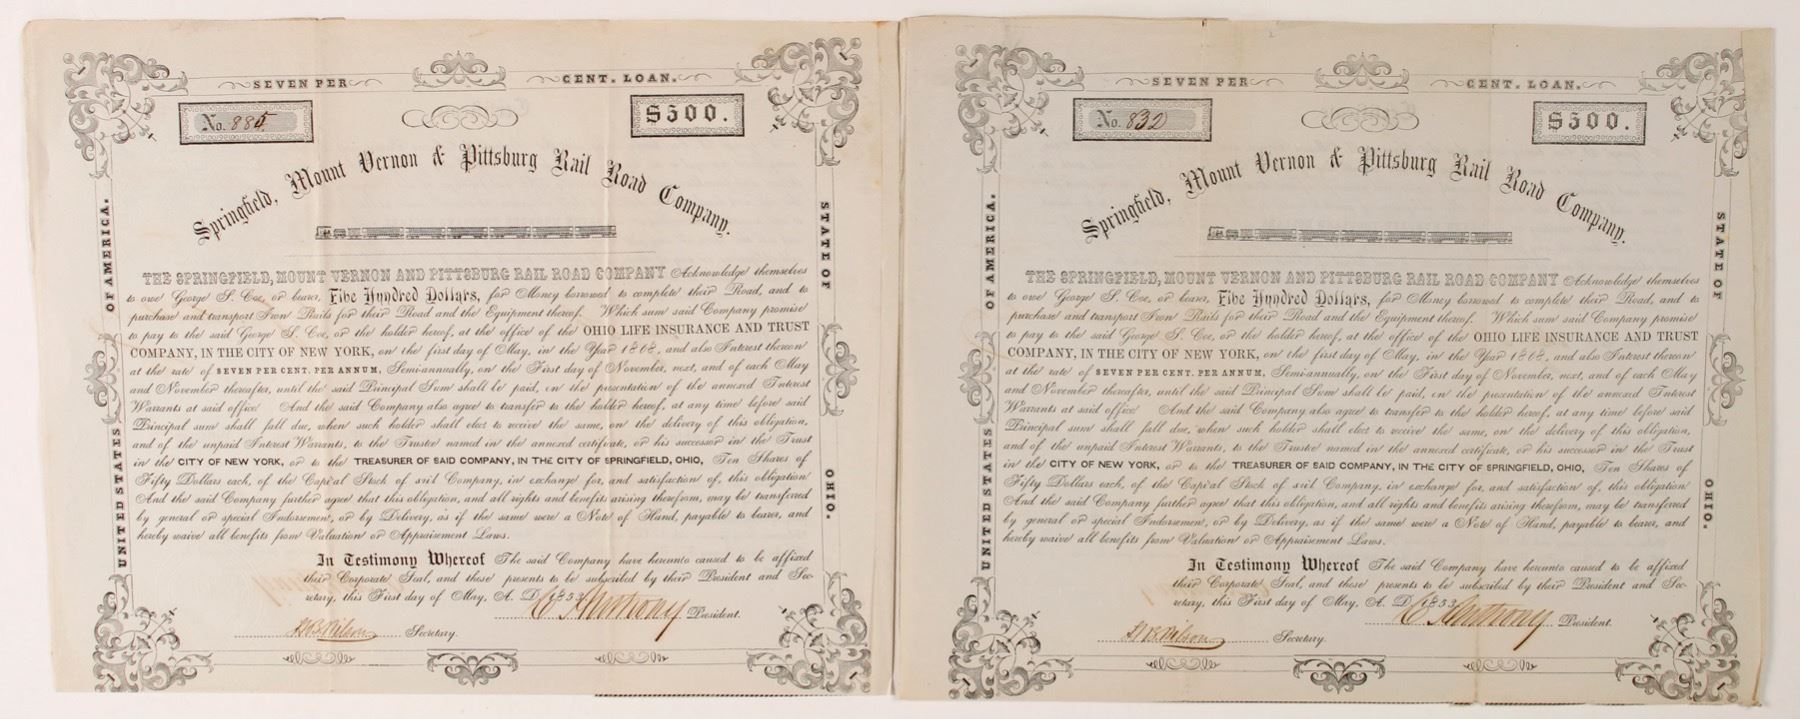 SEVEN PER CENT. LOAN.
No. 885.
$500.
Springfield, Mount Vernon & Pittsburg Rail Road Company.
OF AMERICA.
STATE OF
THE SPRINGFIELD, MOUNT VERNON AND PITTSBURG RAIL ROAD COMPANY Acknowledge themselves
to owe George S. Coe, or bearer, Five Hundred Dollars, for Money borrowed to complete their Road, and to
purchase and transport Iron Rails for their Road and the Equipment thereof. Which sum said Company promise
to pay to the said George S. Coe, or the holder hereof, at the office of the OHIO LIFE INSURANCE AND TRUST
COMPANY, IN THE CITY OF NEW YORK, on the first day of May, in the Year 1868, and also Interest thereon
at the rate of SEVEN PER CENT. PER ANNUM, Semi-annually, on the First day of November, next, and of each May
and November thereafter, until the said Principal Sum shall be paid, on the presentation of the annexed Interest
Warrants at said office And the said Company also agree to transfer to the holder hereof, at any time before said
Principal sum shall fall due, when such holder shall elect to receive the same, on the delivery of this obligation,
and of the unpaid Interest Warrants, to the Trustee named in the annexed certificate, or his successor in the Trust
in the CITY OF NEW YORK, or to the TREASURER OF SAID COMPANY, IN THE CITY OF SPRINGFIELD, OHIO, Ten Shares of
Fifty Dollars each, of the Capital Stock of said Company, in exchange for, and satisfaction of, this obligation
And the said Company further agree that this obligation, and all rights and benefits arising therefrom, may be transferred
by general or special Indorsement, or by Delivery, as if the same were a Note of Hand, payable to bearer, and
hereby waive all benefits from Valuation or Appraisement Laws.
UNITED STATES
OHIO.
In Testimony Whereof The said Company have hereunto caused to be affixed
their Corporate Seal, and these presents to be subscribed by their President and Sec-
retary, this First day of May, A. D. 1853
C Anthony President.
H B Wilson Secretary.
SEVEN PER CENT. LOAN.
No. 832
$500.
Springfield, Mount Vernon & Pittsburg Rail Road Company.
OF AMERICA.
STATE OF
THE SPRINGFIELD, MOUNT VERNON AND PITTSBURG RAIL ROAD COMPANY Acknowledge themselves
to owe George S. Coe, or bearer, Five Hundred Dollars, for Money borrowed to complete their Road, and to
purchase and transport Iron Rails for their Road and the Equipment thereof. Which sum said Company promise
to pay to the said George S. Coe, or the holder hereof, at the office of the OHIO LIFE INSURANCE AND TRUST
COMPANY, IN THE CITY OF NEW YORK, on the first day of May, in the Year 1868, and also Interest thereon
at the rate of SEVEN PER CENT. PER ANNUM, Semi-annually, on the First day of November, next, and of each May
and November thereafter, until the said Principal Sum shall be paid, on the presentation of the annexed Interest
Warrants at said office And the said Company also agree to transfer to the holder hereof, at any time before said
Principal sum shall fall due, when such holder shall elect to receive the same, on the delivery of this obligation,
and of the unpaid Interest Warrants, to the Trustee named in the annexed certificate, or his successor in the Trust
in the CITY OF NEW YORK, or to the TREASURER OF SAID COMPANY, IN THE CITY OF SPRINGFIELD, OHIO, Ten Shares of
Fifty Dollars each, of the Capital Stock of said Company, in exchange for, and satisfaction of, this obligation,
And the said Company further agree that this obligation, and all rights and benefits arising therefrom, may be transferred
by general or special Indorsement, or by Delivery, as if the same were a Note of Hand, payable to bearer, and
hereby waive all benefits from Valuation or Appraisement Laws.
UNITED STATES
OHIO.
In Testimony Whereof The said Company have hereunto caused to be affixed
their Corporate Seal, and these presents to be subscribed by their President and Sec-
retary, this First day of May, A. D. 1853
C Anthony President.
H B Wilson Secretary.